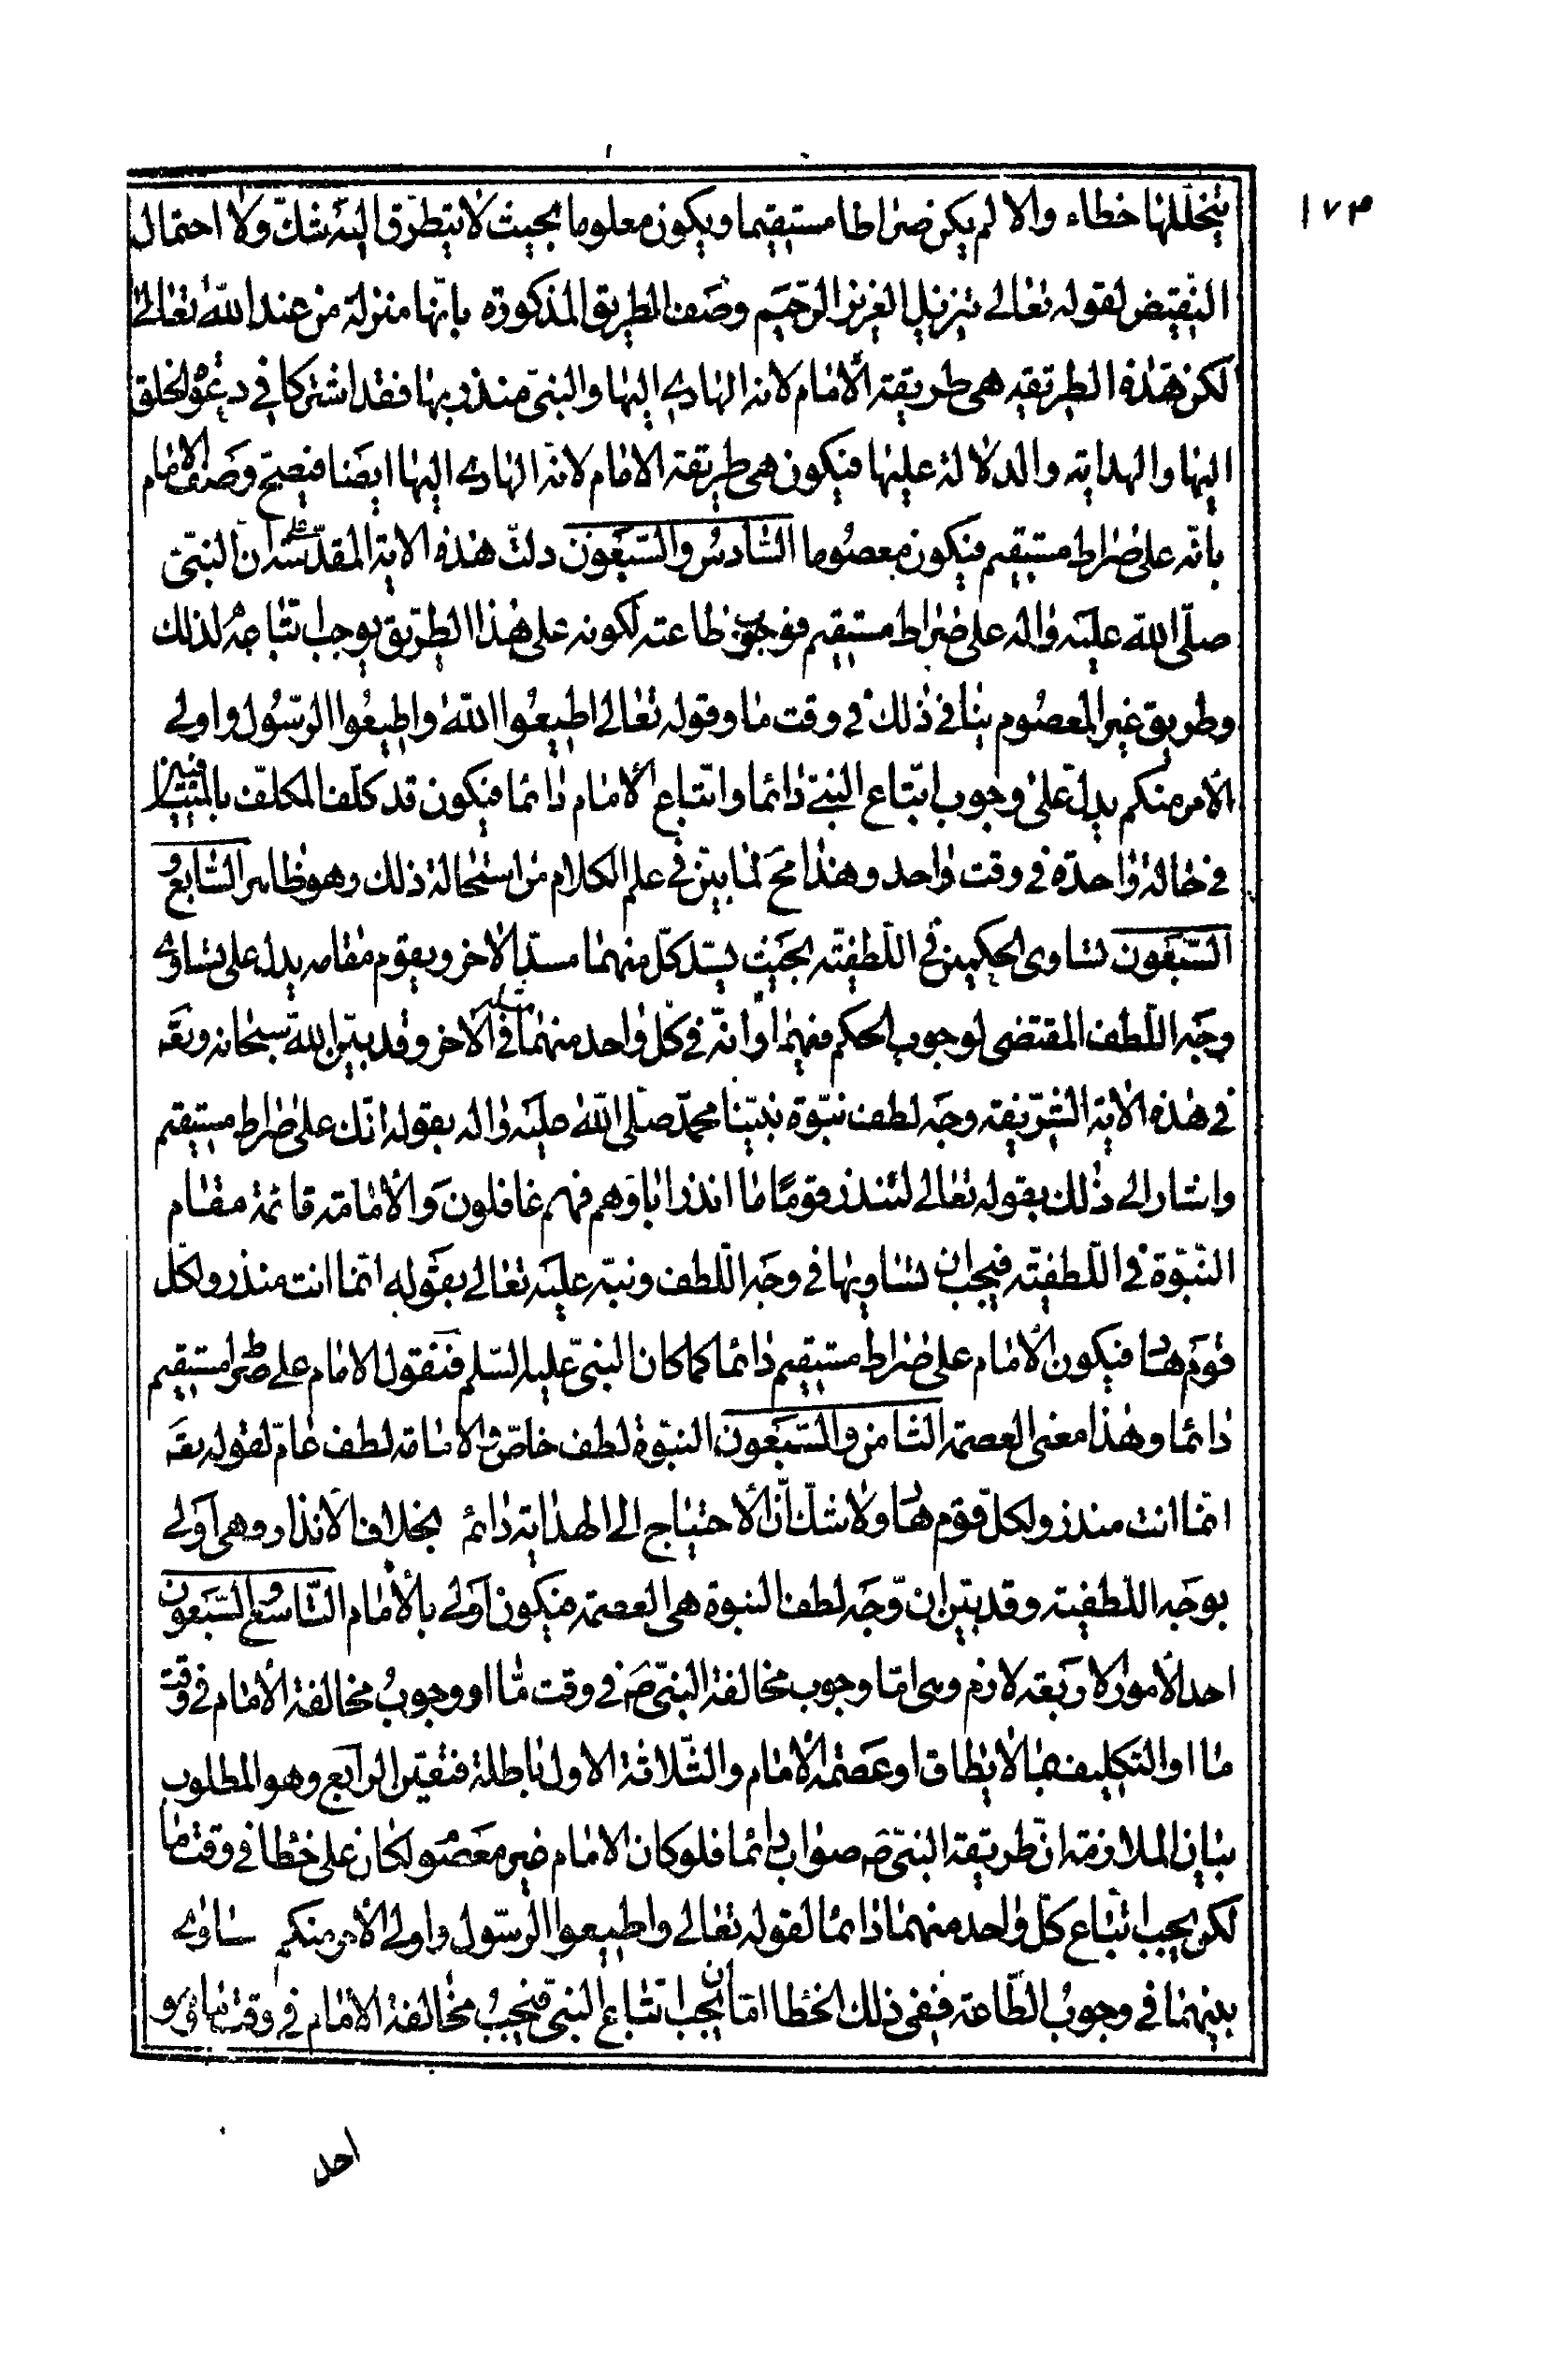 ١٧٣
يتخللها خطاء والا لم يكن صراطا مستقيما ويكون معلوما بحيث لا يتطرق اليه شك ولا احتمال
النقيض لقوله تعالى تنزيل العزيز الرحيم وصف الطريق المذكورة بانها منزلة من عند الله تعالى
لكن هذه الطريقة هي طريقة الامام لانه الهادي اليها والنبي منذر بها فقد اشتركا في دعوة الخلق
اليها والهداية والدلالة عليها فيكون هي طريقة الامام لانه الهادي اليها ايضا فيصح وصف الامام
بانه على صراط مستقيم فيكون معصوما السادس والسبعون دلت هذه الاية المقدسة على ان النبي
صلى الله عليه واله على صراط مستقيم فوجوب طاعته لكونه على هذا الطريق يوجب اتباعه لذلك
وطريق غير المعصوم ينافي ذلك في وقت ما وقوله تعالى اطيعوا الله واطيعوا الرسول واولي
الامر منكم يدل على وجوب اتباع النبي دائما واتباع الامام دائما فيكون قد كلف المكلف بالمتنافيين
في حالة واحدة في وقت واحد وهذا مح لما بين في علم الكلام من استحالة ذلك وهو ظاهر السابع و
السبعون تساوي الحكمين في اللطفية بحيث يسد كل منهما مسد الاخر ويقوم مقامه يدل على تساوي
وجه اللطف المقتضي لوجوب الحكم فيهما او انه في كل واحد منهما في الاخر وقد بين الله سبحانه وتعه
في هذه الاية الشريفة وجه لطف نبوة نبينا محمد صلى الله عليه واله بقوله انك على صراط مستقيم
واشار الى ذلك بقوله تعالى لتنذر قوما ما انذر اباؤهم فهم غافلون والامامة قائمة مقام
النبوة في اللطفية فيجب ان تساويها في وجه اللطف ونبه عليه تعالى بقوله انما انت منذر ولكل
قوم هاد فيكون الامام على صراط مستقيم دائما كما كان النبي عليه السلم فنقول الامام على صراط مستقيم
دائما وهذا معنى العصمة الثامن والسبعون النبوة لطف خاص والامامة لطف عام لقوله تعه
انما انت منذر ولكل قوم هاد ولا شك ان الاحتياج الى الهداية دائم بخلاف الانذار وهي اولى
بوجه اللطفية وقد بين ان وجه لطف النبوة هي العصمة فيكون اولى بالامام التاسع والسبعون
احد الامور الاربعة لازم وهي اما وجوب مخالفة النبي ص في وقت ما او وجوب مخالفة الامام في وقت
ما او التكليف بما لا يطاق او عصمة الامام والثلاثة الاول باطلة فتعين الرابع وهو المطلوب
بيان الملازمة ان طريقة النبي ص صواب دائما فلو كان الامام غير معصوم لكان على خطا في وقت ما
لكن يجب اتباع كل واحد منهما دائما لقوله تعالى واطيعوا الرسول واولي الامر منكم ساوى
بينهما في وجوب الطاعة ففي ذلك الخطا اما ان يجب اتباع النبي فيجب مخالفة الامام في وقت ما وهو
احد